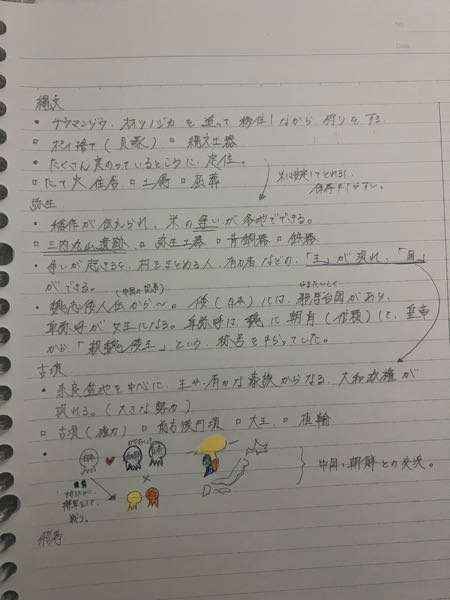 縄文
・ナウマンゾウ、オオツノジカを追って移住しながら狩りをする
・ポイ捨て(貝塚) □縄文土器
・たくさん実のっているところに、定住。
□たて穴住居 □土偶 □屈葬
保存しやすい。
弥生
・稲作が伝えられ、米の争いが各地でできる。
□三内丸山遺跡 □弥生土器 □青銅器 □鉄器
・争いが起きると、村をまとめる人、有力者などの、「王」が現れ、「国」
ができる。
・魏志倭人伝から〜。倭(日本)には、邪馬台国があり、
やまたいこく
卑弥呼が女王になる。卑弥呼は、魏に朝貢()して、皇帝
から「親魏倭王」という、称号をもらっていた。
古墳
・奈良盆地を中心に、王や、有力な豪族からなる、大和政権が
現れる。(大きな勢力)
□古墳(権力) □前方後円墳 □大王 □埴輪
中国・朝鮮との交流。
飛鳥